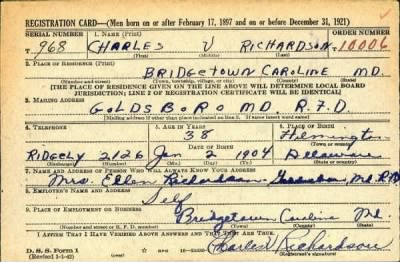 REGISTRATION CARD—(Men born on or after February 17, 1897 and on or before December 31, 1921)
SERIAL NUMBER 1. NAME (Print) ORDER NUMBER
968 CHARLES V RICHARDSON 10006
2. PLACE OF RESIDENCE (Print)
BRIDGETOWN CAROLINE MD.
(Number and street) (Town, township, village, or city) (County) (State)
[THE PLACE OF RESIDENCE GIVEN ON THE LINE ABOVE WILL DETERMINE LOCAL BOARD
JURISDICTION; LINE 2 OF REGISTRATION CERTIFICATE WILL BE IDENTICAL]
3. MAILING ADDRESS
GOLDSBORO MD. R.F.D
[Mailing address if other than place indicated on line 2. If same insert word same]
4. TELEPHONE 5. AGE IN YEARS 6. PLACE OF BIRTH
38
DATE OF BIRTH (Town or county)
RIDGELY 2126 Jan 2 1904 Delaware
(Exchange) (Number) (Mo.) (Day) (Yr.) (State or country)
7. NAME AND ADDRESS OF PERSON WHO WILL ALWAYS KNOW YOUR ADDRESS
Mrs. Richardson Md.
8. EMPLOYER'S NAME AND ADDRESS
Self
9. PLACE OF EMPLOYMENT OR BUSINESS
Bridgetown Caroline Md.
(Number and street or R. F. D. number) (Town) (County) (State)
I AFFIRM THAT I HAVE VERIFIED ABOVE ANSWERS AND THAT THEY ARE TRUE.
D. S. S. Form 1
(Revised 1-1-42) Charles V Richardson